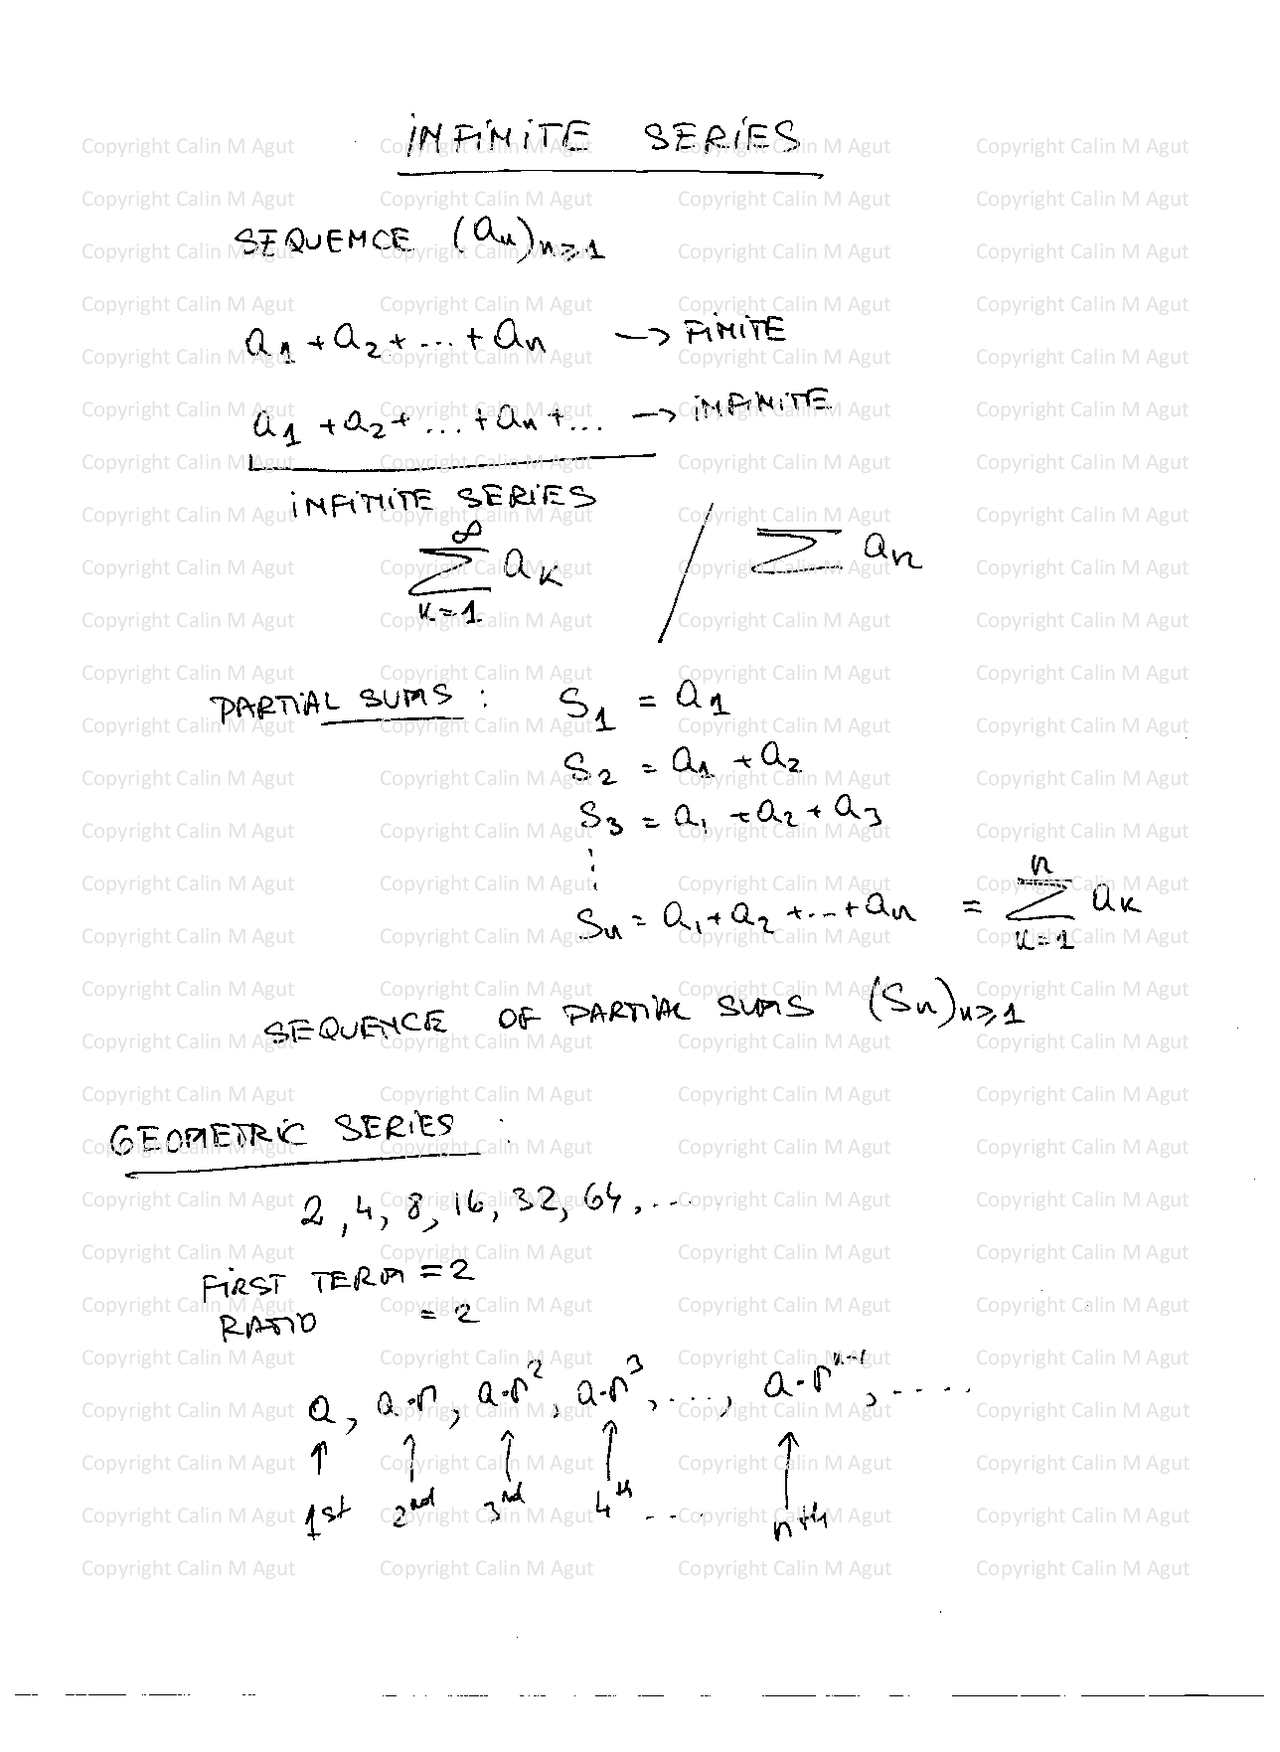 INFINITE SERIES
SEQUENCE (aₙ)ₙ≥₁
a₁ + a₂ + ... + aₙ → FINITE
a₁ + a₂ + ... + aₙ + ... → INFINITE
INFINITE SERIES
∞
∑ aₖ / ∑ aₙ
k=1
PARTIAL SUMS : S₁ = a₁
S₂ = a₁ + a₂
S₃ = a₁ + a₂ + a₃
⋮
n
Sₙ = a₁ + a₂ + ... + aₙ = ∑ aₖ
k=1
SEQUENCE OF PARTIAL SUMS (Sₙ)ₙ≥₁
GEOMETRIC SERIES :
2, 4, 8, 16, 32, 64, ....
FIRST TERM = 2
RATIO = 2
a, a·r, a·r², a·r³, ..., a·rⁿ⁻¹, .....
↑ ↑ ↑ ↑ ↑
1st 2nd 3rd 4th ..... nth
Copyright Calin M Agut